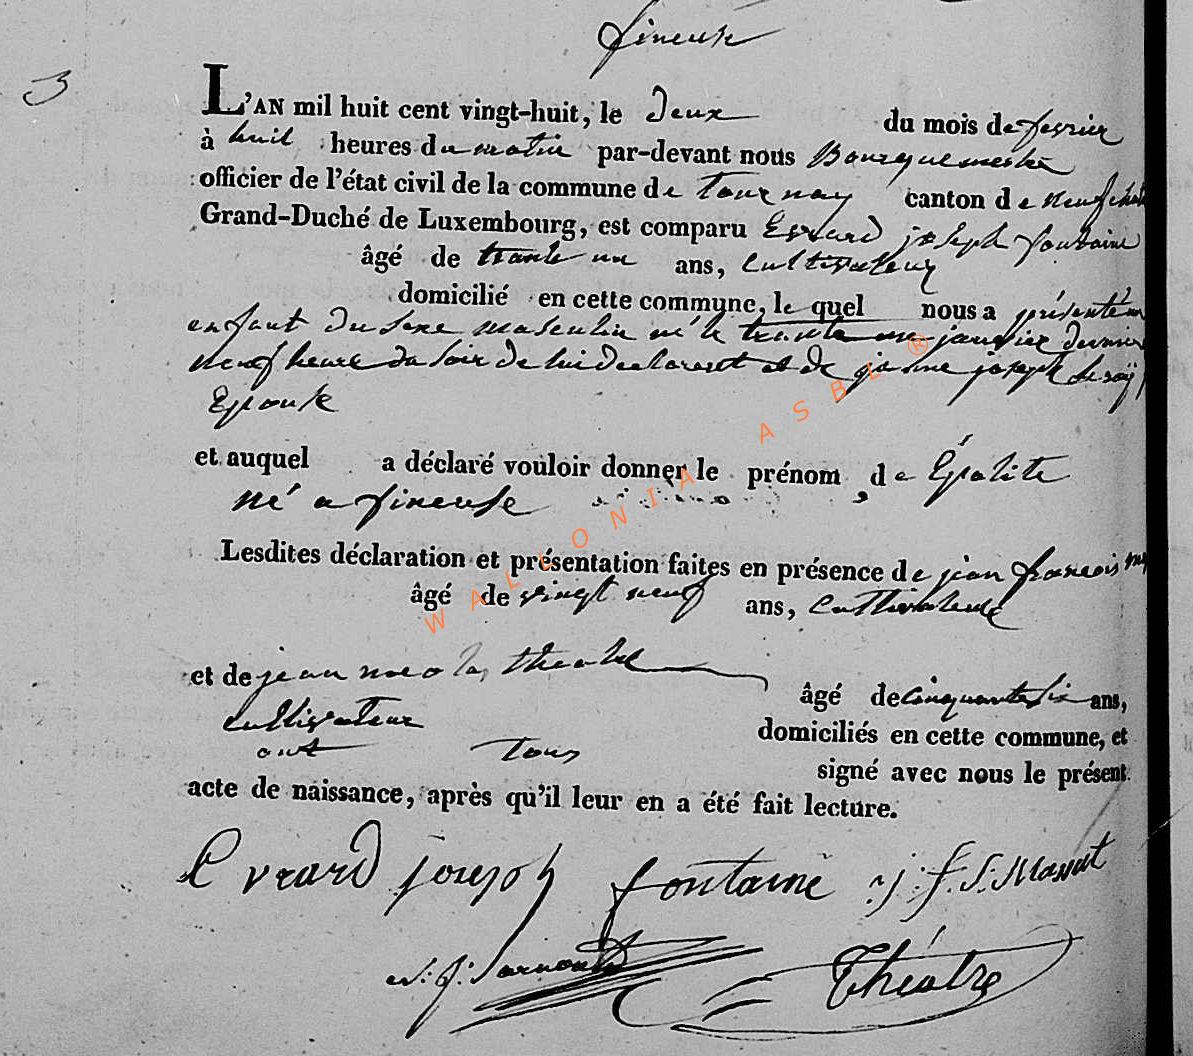 fineuse
3
L'AN mil huit cent vingt-huit, le deux du mois de fevrier
à huit heures du matin par-devant nous Bourguemestre
officier de l'état civil de la commune de Tournay canton de neufchat
Grand-Duché de Luxembourg, est comparu Evrard joseph fontaine
âgé de trente un ans, cultivateur
domicilié en cette commune, le quel nous a présenté un
enfant du sexe masculin né le trente un janvier dernier
neuf heure du soir de lui declarant et de joseph
Epouse
et auquel a déclaré vouloir donner le prénom de Épolite
né a fineuse
Lesdites déclaration et présentation faites en présence de jean francois
âgé de vingt neuf ans, cultivateur
et de jean nicolas theatre
âgé de cinquante six ans,
cultivateur
domiciliés en cette commune, et
ont tous
signé avec nous le présent
acte de naissance, après qu'il leur en a été fait lecture.
Evrard joseph fontaine j: f. J: Massut
Théatre
WALLONIA ASBL ®